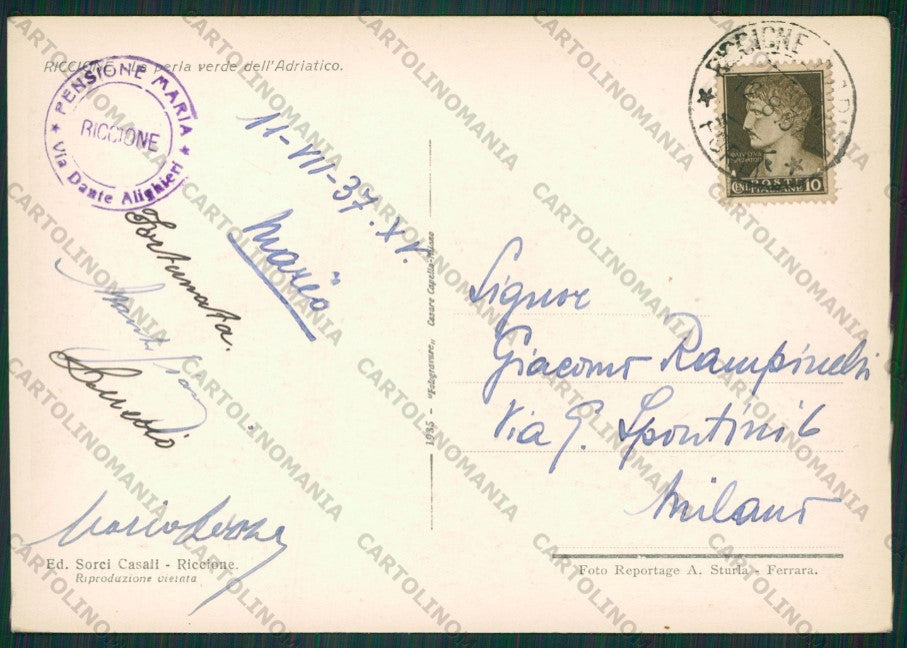 RICCIONE - La perla verde dell'Adriatico.
PENSIONE MARIA
RICCIONE
Via Dante Alighieri
11-VIII-37.XV.
Mario
Fortunata.
RICCIONE
POSTE ITALIANE
CENT. 10
Signor
Giacomo Rampinelli
Via G. Spontini 6
Milano
1935 - "Fotogravure" Cesare Capello-Milano
Ed. Sorci Casali - Riccione.
Riproduzione vietata
Foto Reportage A. Sturla - Ferrara.
CARTOLINOMANIA